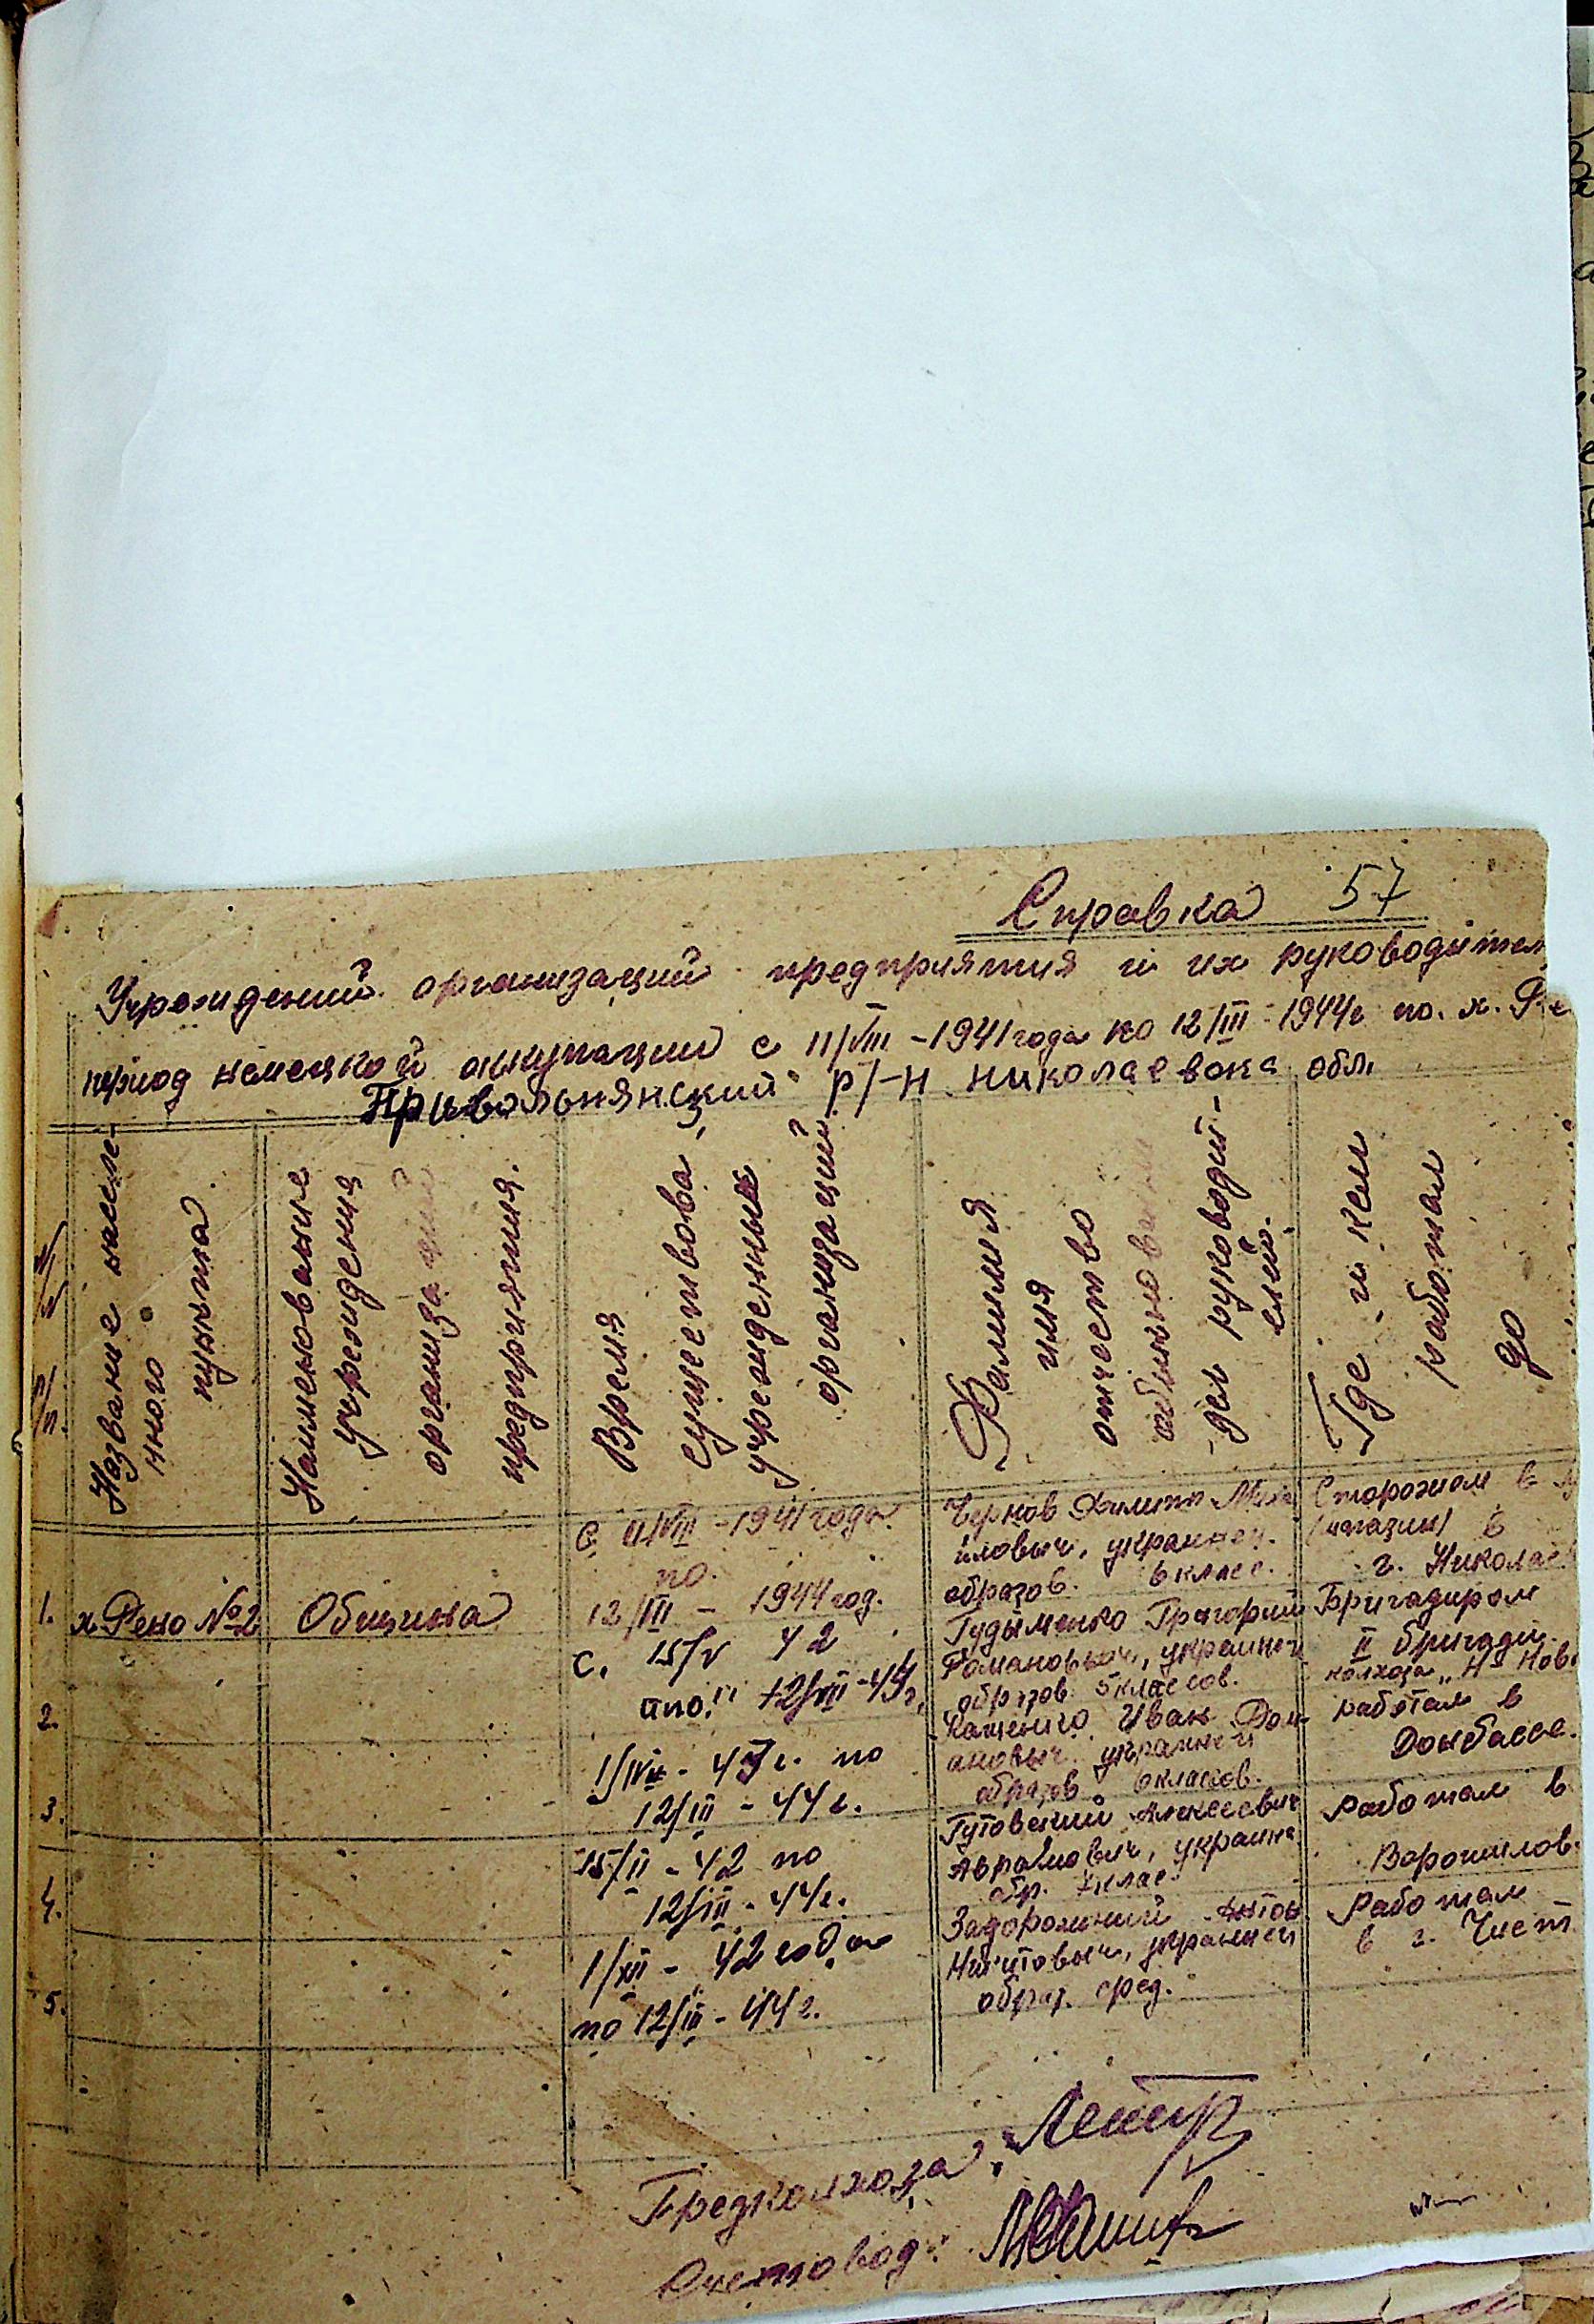 Справка 57
Учреждений организаций предприятия и их руководител
период немецкой оккупации с 11/VIII - 1941 года по 12/III - 1944г по. х. Ре
Привольнянский р/-н николаевска обл.
Название населе-
нного
пункта.
Наименование
учреждения
организаций
предприятия.
Время
существова
учрежденные
организаций
Фамилия
имя
отчество
руководи-
елей.
Где и кем
работал
до
1. х. Рено №2
Община
с 11/VIII - 1941 года
по.
12/III - 1944 год.
Чернов Филипп Миха
иловыч, украинец.
образов. 6 класс.
Сторожом в
(магазин) в
г. Николаев
2.
с. 15/V 42
по
Гудыменко Григорий
Романовыч, украинец
образов. 5 классов.
Бригадиром
II бригади
колхоза "Н- Нов
3.
43 г. по
12/III - 44 г.
Иван Ром-
ановыч. украинец
образов 6 классов.
работал в
Донбассе.
4.
15/II - 42 по
12/III - 44г.
Гутовский Алексеевич
Аврамович, украине
обр. 7 клас.
Работал в
Ворошилов.
5.
1/XII - 42 года
по 12/III - 44 г.
Задорожний Антон
украинец
образ. сред.
Работал
в г. Чист
Предколхоза:
Счетовод: